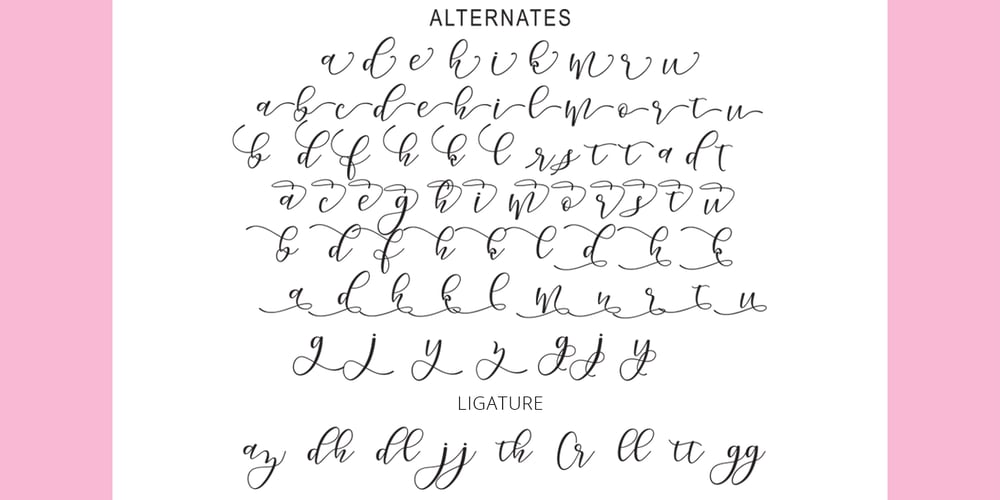 ALTERNATES
a d e h i k m r u
a b c d e h i l m o r t u
b d f h k l r s t t a d t
a c e g h i m o r s t u
b d f h k l d h k
a d h k l m n r t u
g j y z g j y
LIGATURE
az dh dl jj th Or ll tt gg